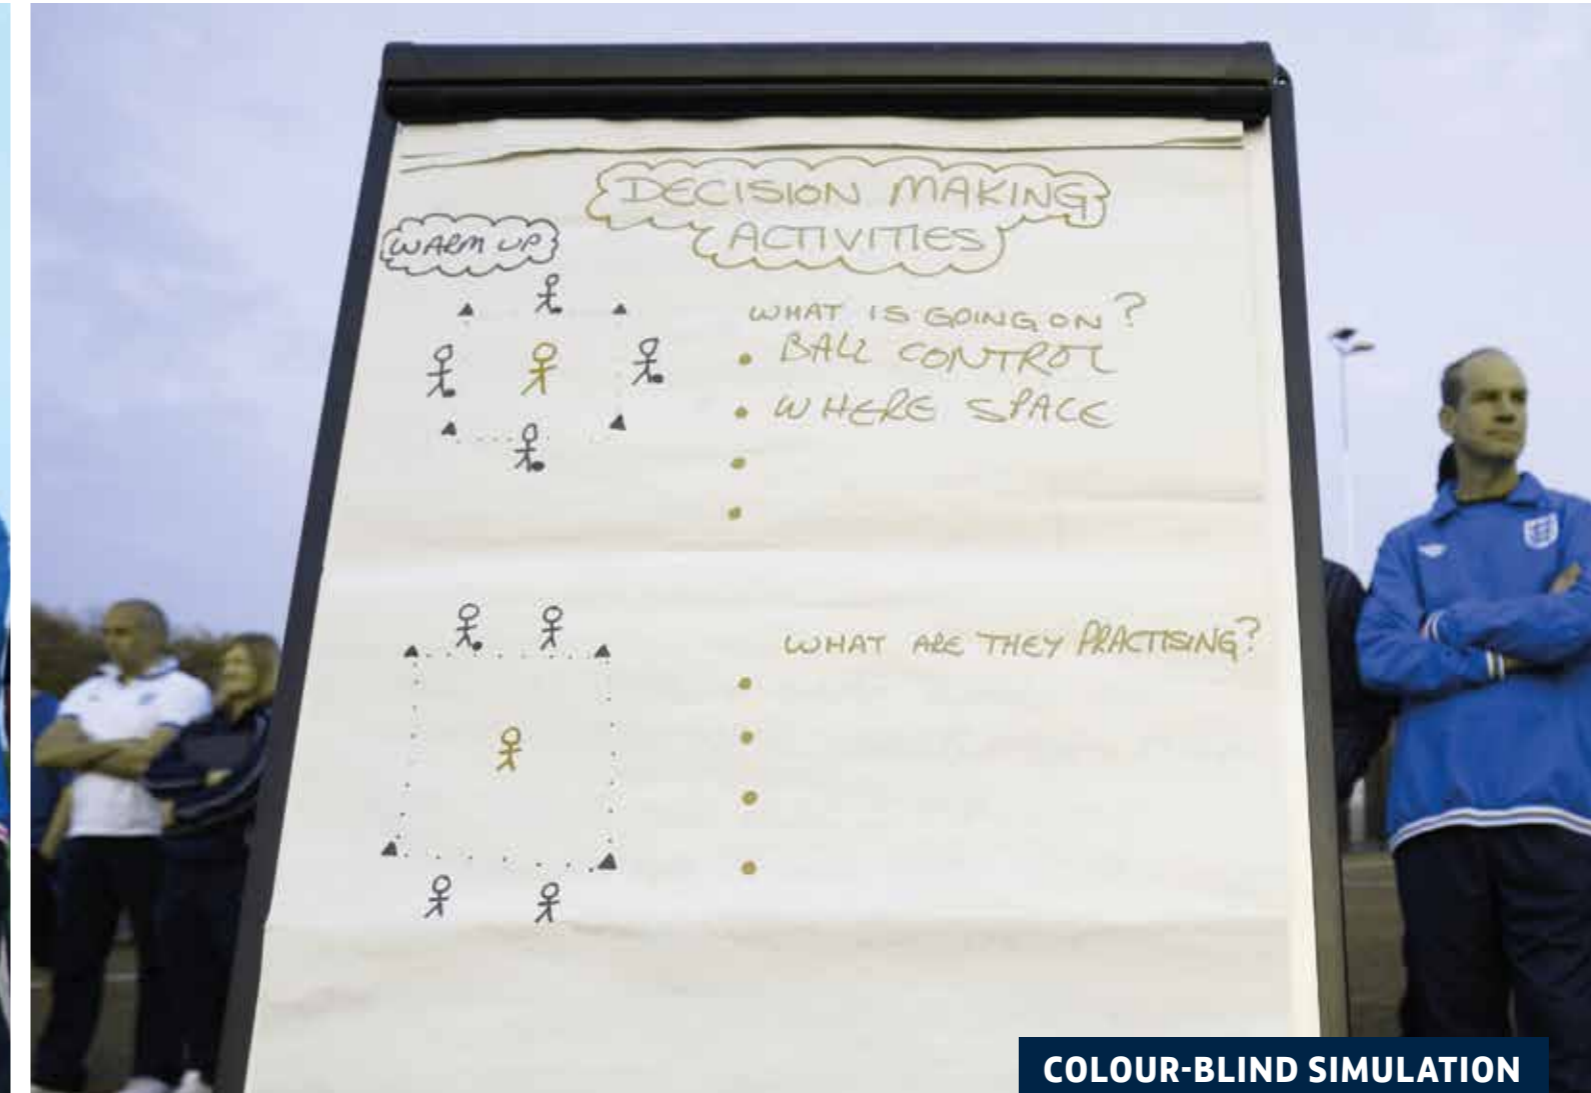 DECISION MAKING
ACTIVITIES
WARM UP
WHAT IS GOING ON?
• BALL CONTROL
• WHERE SPACE
•
•
WHAT ARE THEY PRACTISING?
•
•
•
•
COLOUR-BLIND SIMULATION